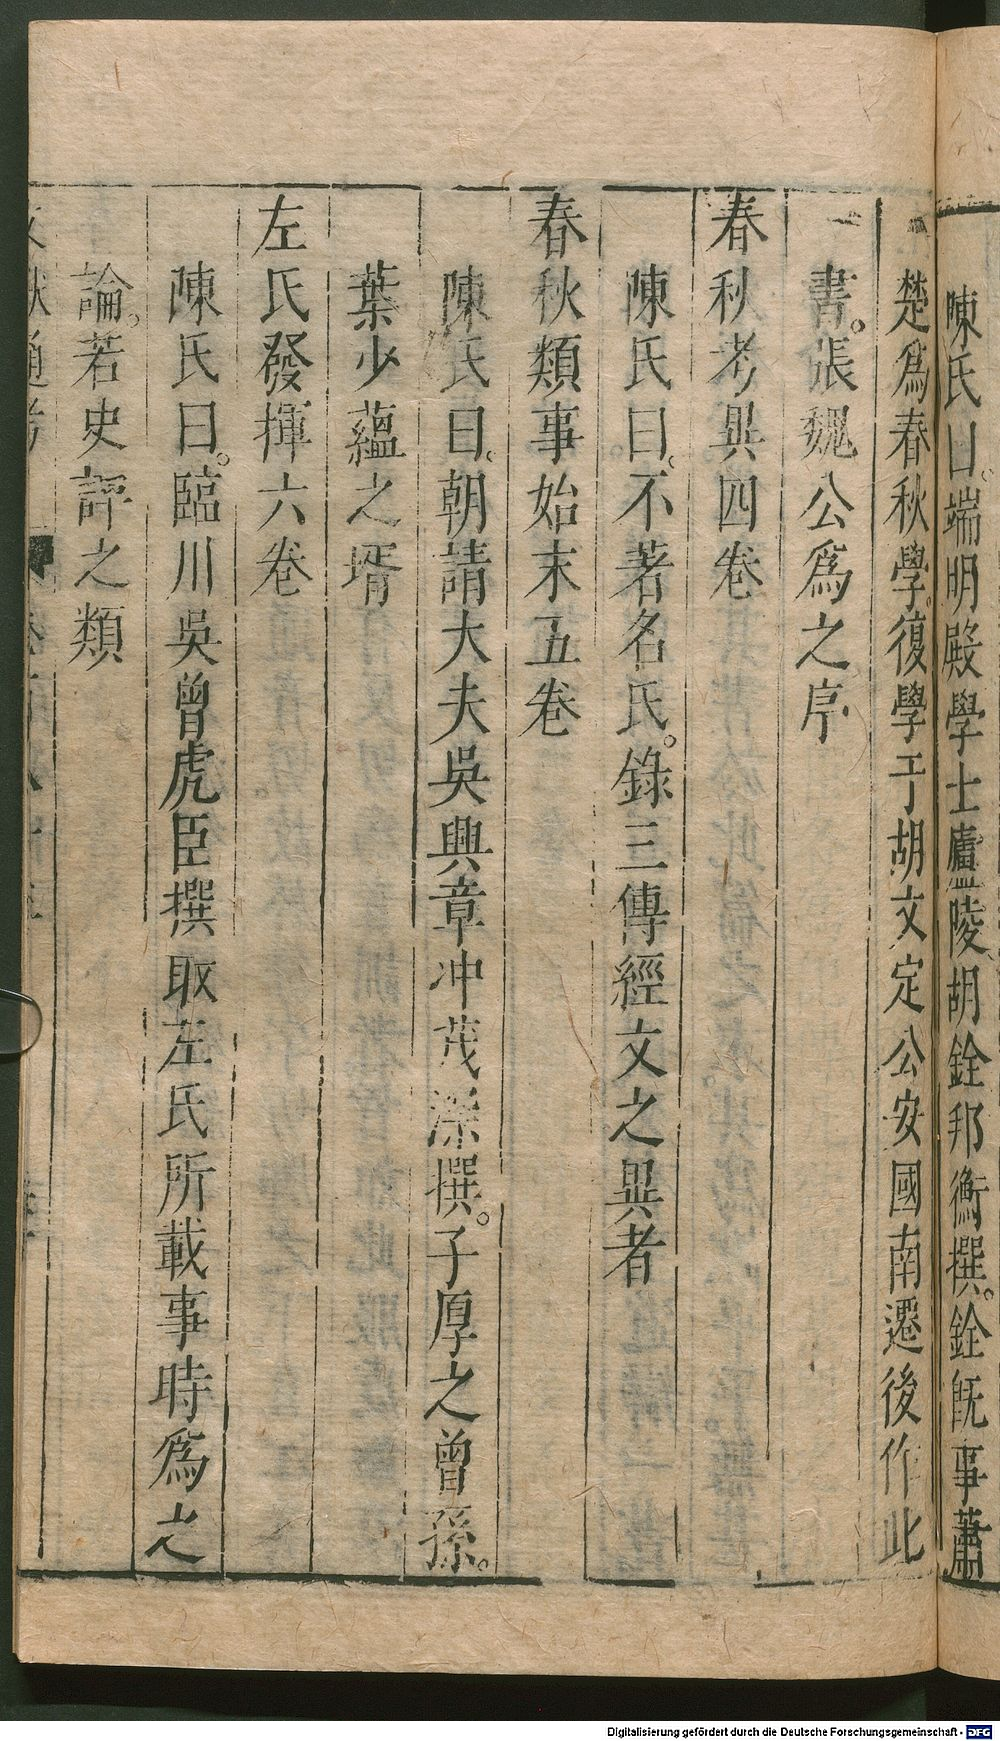 陳氏曰端明殿學士廬陵胡銓邦衡撰。銓旣事蕭
楚爲春秋學。復學于胡文定公安國南遷後作此
書。張魏公爲之序
春秋考異四卷
陳氏曰。不著名氏。錄三傳經文之異者
春秋類事始末五卷
陳氏曰。朝請大夫吳興章冲茂深撰。子厚之曾孫。
葉少蘊之壻
左氏發揮六卷
陳氏曰。臨川吳曾虎臣撰取左氏所載事時爲之
論。若史評之類
Digitalisierung gefördert durch die Deutsche Forschungsgemeinschaft - DFG